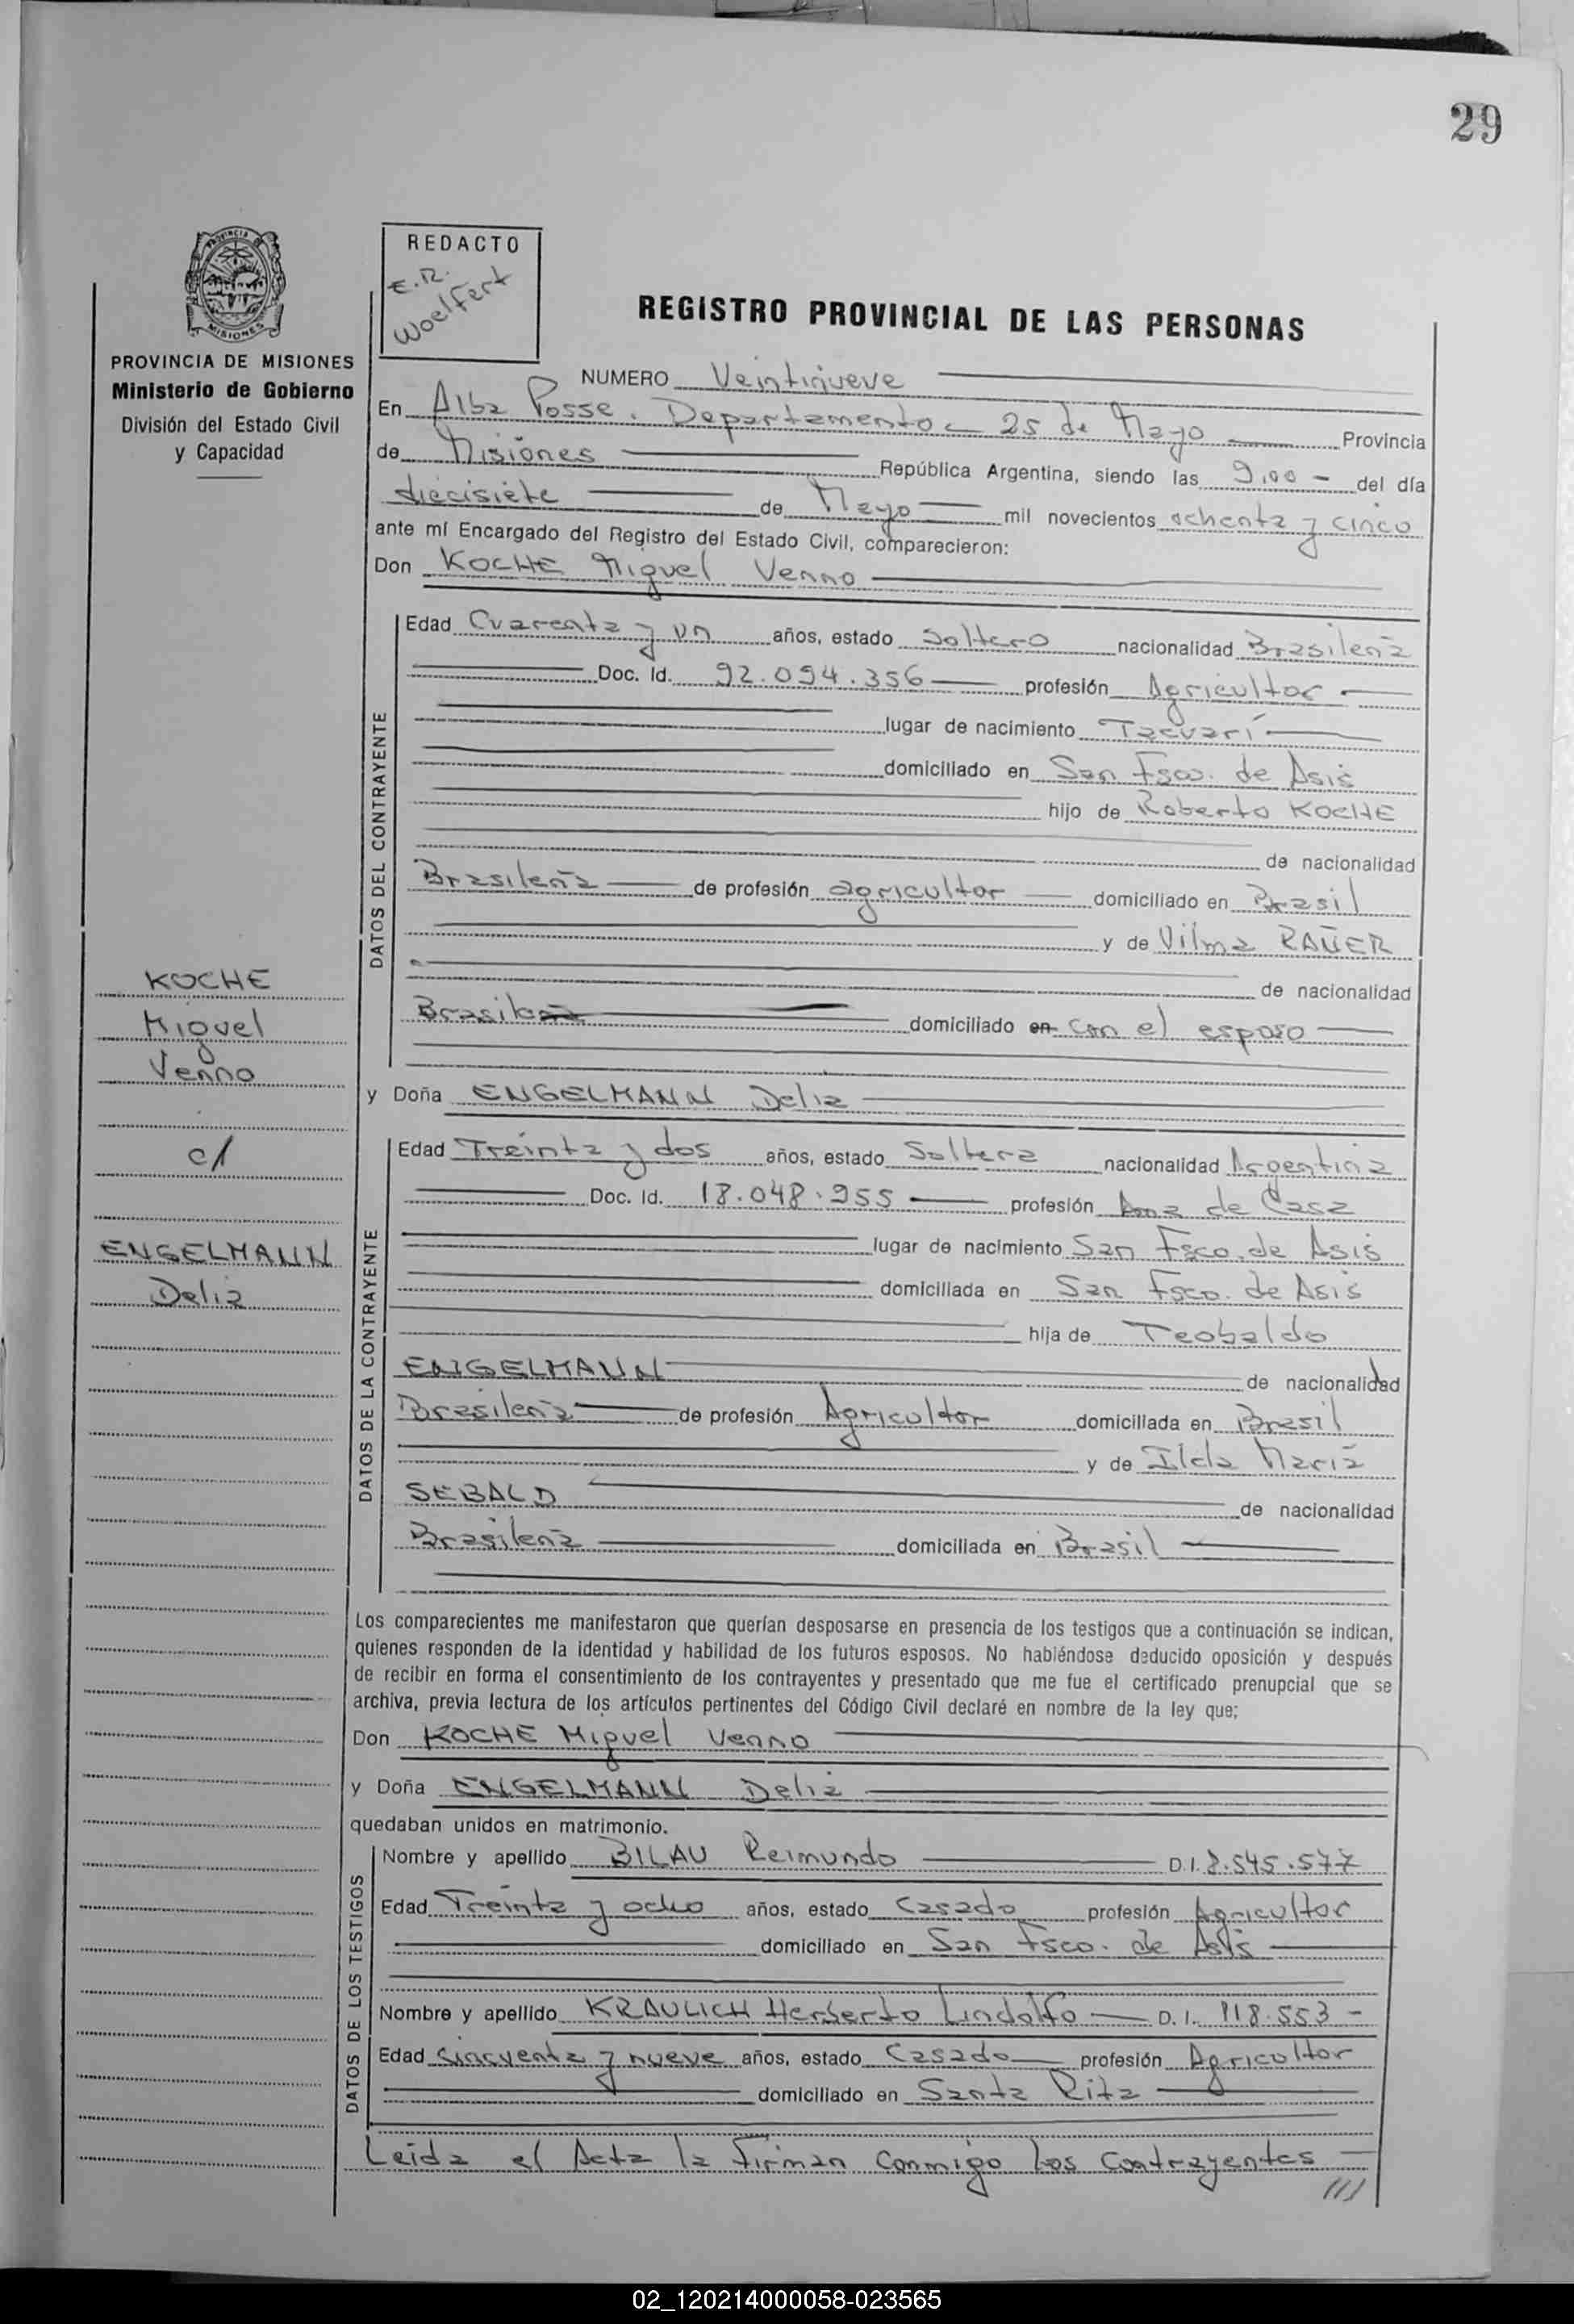 29
PROVINCIA DE
MISIONES
PROVINCIA DE MISIONES
Ministerio de Gobierno
División del Estado Civil
y Capacidad
REDACTO
E.R.
Woelfert
REGISTRO PROVINCIAL DE LAS PERSONAS
NUMERO Veintinueve
En Alba Posse. Departamento - 25 de Mayo Provincia
de Misiones República Argentina, siendo las 9,00 - del día
diecisiete de Mayo mil novecientos ochenta y cinco
ante mí Encargado del Registro del Estado Civil, comparecieron:
Don KOCHE Miguel Venno
DATOS DEL CONTRAYENTE
Edad Cuarenta y un años, estado Soltero nacionalidad Brasileña
Doc. Id. 92.094.356 profesión Agricultor
lugar de nacimiento Tacuarí
domiciliado en San Fsco. de Asis
hijo de Roberto KOCHE
de nacionalidad
Brasileña de profesión agricultor domiciliado en Brasil
y de Vilma RAÜER
de nacionalidad
Brasileña domiciliado en con el esposo
KOCHE
Miguel
Venno
c/
ENGELMANN
Delia
y Doña ENGELMANN Delia
DATOS DE LA CONTRAYENTE
Edad Treinta y dos años, estado Soltera nacionalidad Argentina
Doc. Id. 18.048.955 profesión Ama de Casa
lugar de nacimiento San Fsco. de Asis
domiciliada en San Fsco. de Asis
hija de Teobaldo
ENGELMANN de nacionalidad
Brasileña de profesión Agricultor domiciliada en Brasil
y de Ilda María
SEBALD de nacionalidad
Brasileña domiciliada en Brasil
Los comparecientes me manifestaron que querían desposarse en presencia de los testigos que a continuación se indican,
quienes responden de la identidad y habilidad de los futuros esposos. No habiéndose deducido oposición y después
de recibir en forma el consentimiento de los contrayentes y presentado que me fue el certificado prenupcial que se
archiva, previa lectura de los artículos pertinentes del Código Civil declaré en nombre de la ley que;
Don KOCHE Miguel Venno
y Doña ENGELMANN Delia
quedaban unidos en matrimonio.
DATOS DE LOS TESTIGOS
Nombre y apellido BILAU Reimundo D.I. 8.545.577
Edad Treinta y ocho años, estado Casado profesión Agricultor
domiciliado en San Fsco. de Asis
Nombre y apellido KRAULICH Herberto Lindolfo D. I. 118.553 -
Edad cincuenta y nueve años, estado Casado profesión Agricultor
domiciliado en Santa Rita
Leida el Acta la firman conmigo los contrayentes
///
02_120214000058-023565